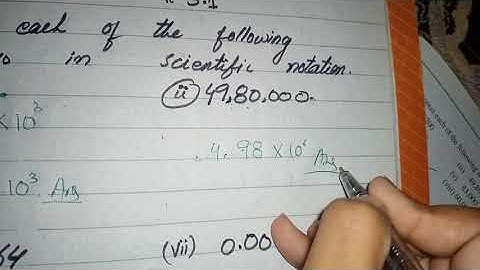 5.1
each of the following
in scientific notation.
(ii) 49,80,000.
× 10²
4.98 × 10⁶ Ans
10³. Ans
(vii) 0.00
64